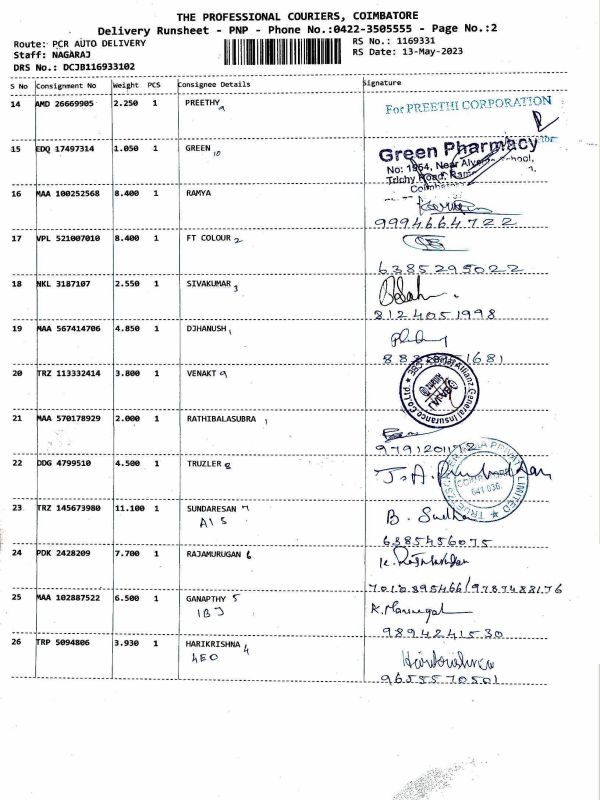 THE PROFESSIONAL COURIERS, COIMBATORE
Delivery Runsheet - PNP - Phone No.:0422-3505555 - Page No.:2
Route: PCR AUTO DELIVERY RS No.: 1169331
Staff: NAGARAJ RS Date: 13-May-2023
DRS No.: DCJB116933102
S No Consignment No Weight PCS Consignee Details Signature
14 AMD 26669905 2.250 1 PREETHY 9 For PREETHI CORPORATION
15 EDQ 17497314 1.050 1 GREEN 10 Green Pharmacy
No: 1964, Near School,
Trichy Road,
16 MAA 100252568 8.400 1 RAMYA
9994664722
17 VPL 521007010 8.400 1 FT COLOUR 2
6385295022
18 NKL 3187107 2.550 1 SIVAKUMAR 3
8124051998
19 MAA 567414706 4.850 1 DJHANUSH 1
20 TRZ 113332414 3.800 1 VENAKT 9 Allianz General Insurance Co.Ltd.
21 MAA 570178929 2.000 1 RATHIBALASUBRA 1
9791201172
22 DDG 4799510 4.500 1 TRUZLER 8 PRIVATE LIMITED
641 036.
23 TRZ 145673980 11.100 1 SUNDARESAN 7 B. Sudha
A15
6385456075
24 PDK 2428209 7.700 1 RAJAMURUGAN 6
7010895466/9787488176
25 MAA 102887522 6.500 1 GANAPTHY 5
IBJ
9894241530
26 TRP 5094806 3.930 1 HARIKRISHNA 4 Harikrishna
4EO
9655570501